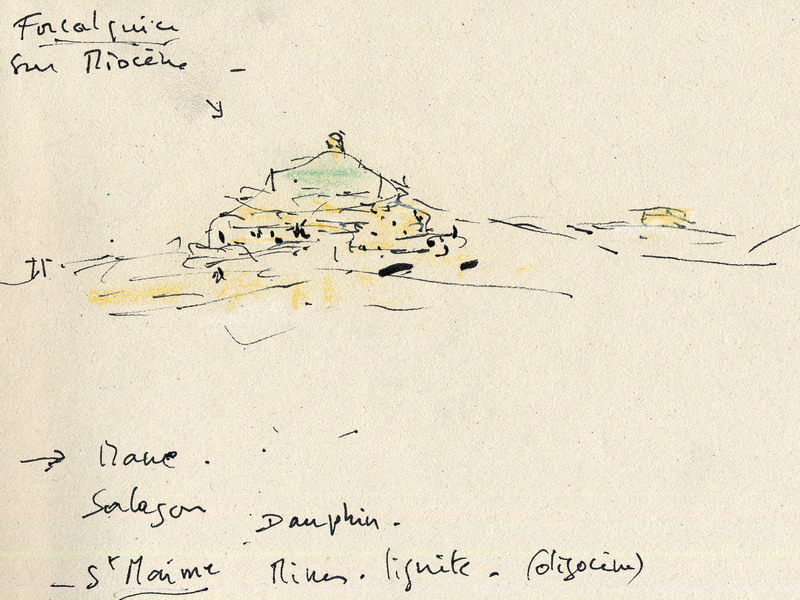 Forcalquier
sur Miocène –
→ Mane.
Salagon Dauphin.
– St Maime Mines. lignite. (oligocène)